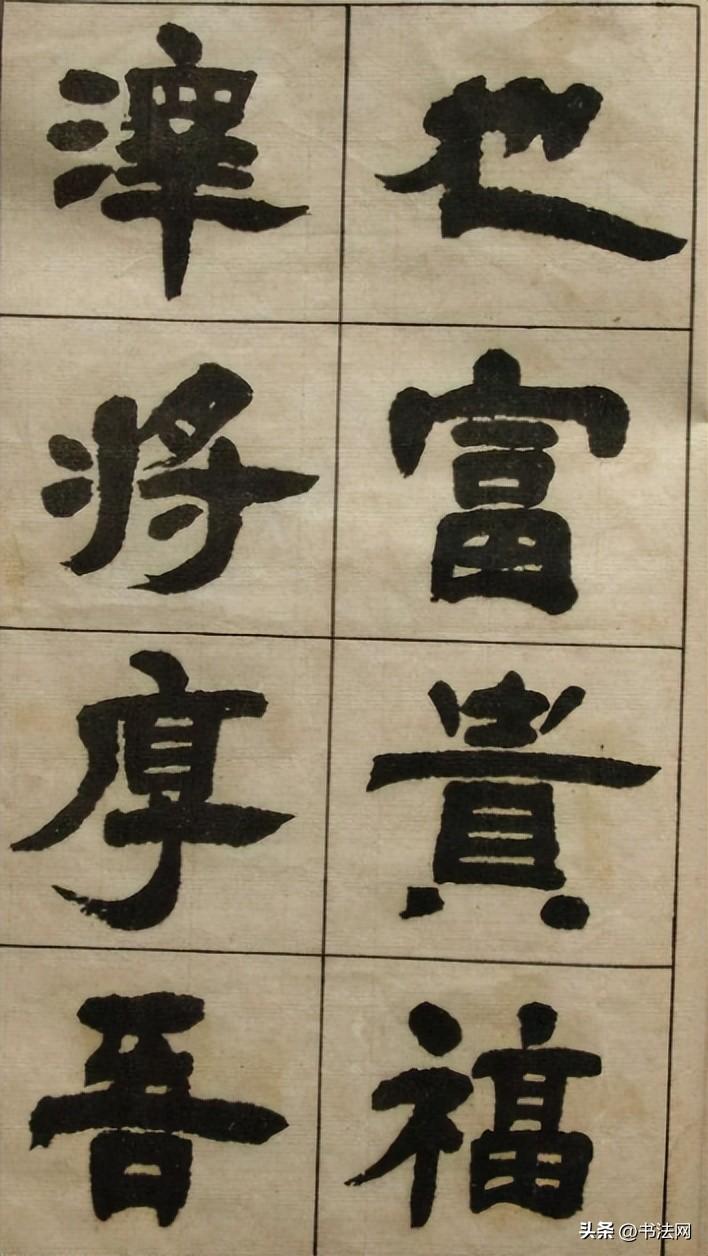 也富貴福
澤將厚吾
头条 @书法网